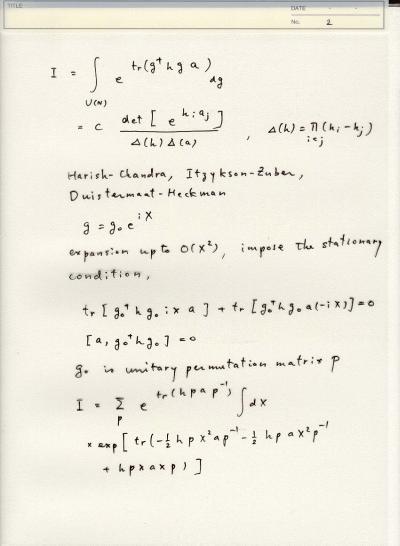 TITLE
DATE
No. 2
I = ∫_{U(N)} e^{tr(g⁺ h g a)} dg
= c det[e^{h_i a_j}] / Δ(h) Δ(a) , Δ(h) = Π_{i<j} (h_i - h_j)
Harish-Chandra, Itzykson-Zuber,
Duistermaat-Heckman
g = g₀ e^{iX}
expansion up to O(X²), impose the stationary
condition,
tr[g₀⁺ h g₀ i x a] + tr[g₀⁺ h g₀ a(-i x)] = 0
[a, g₀⁺ h g₀] = 0
g₀ is unitary permutation matrix P
I = Σ_P e^{tr(h p a p⁻¹)} ∫ dX
× exp[tr(-½ h p x² a p⁻¹ - ½ h p a x² p⁻¹
+ h p x a x p)]